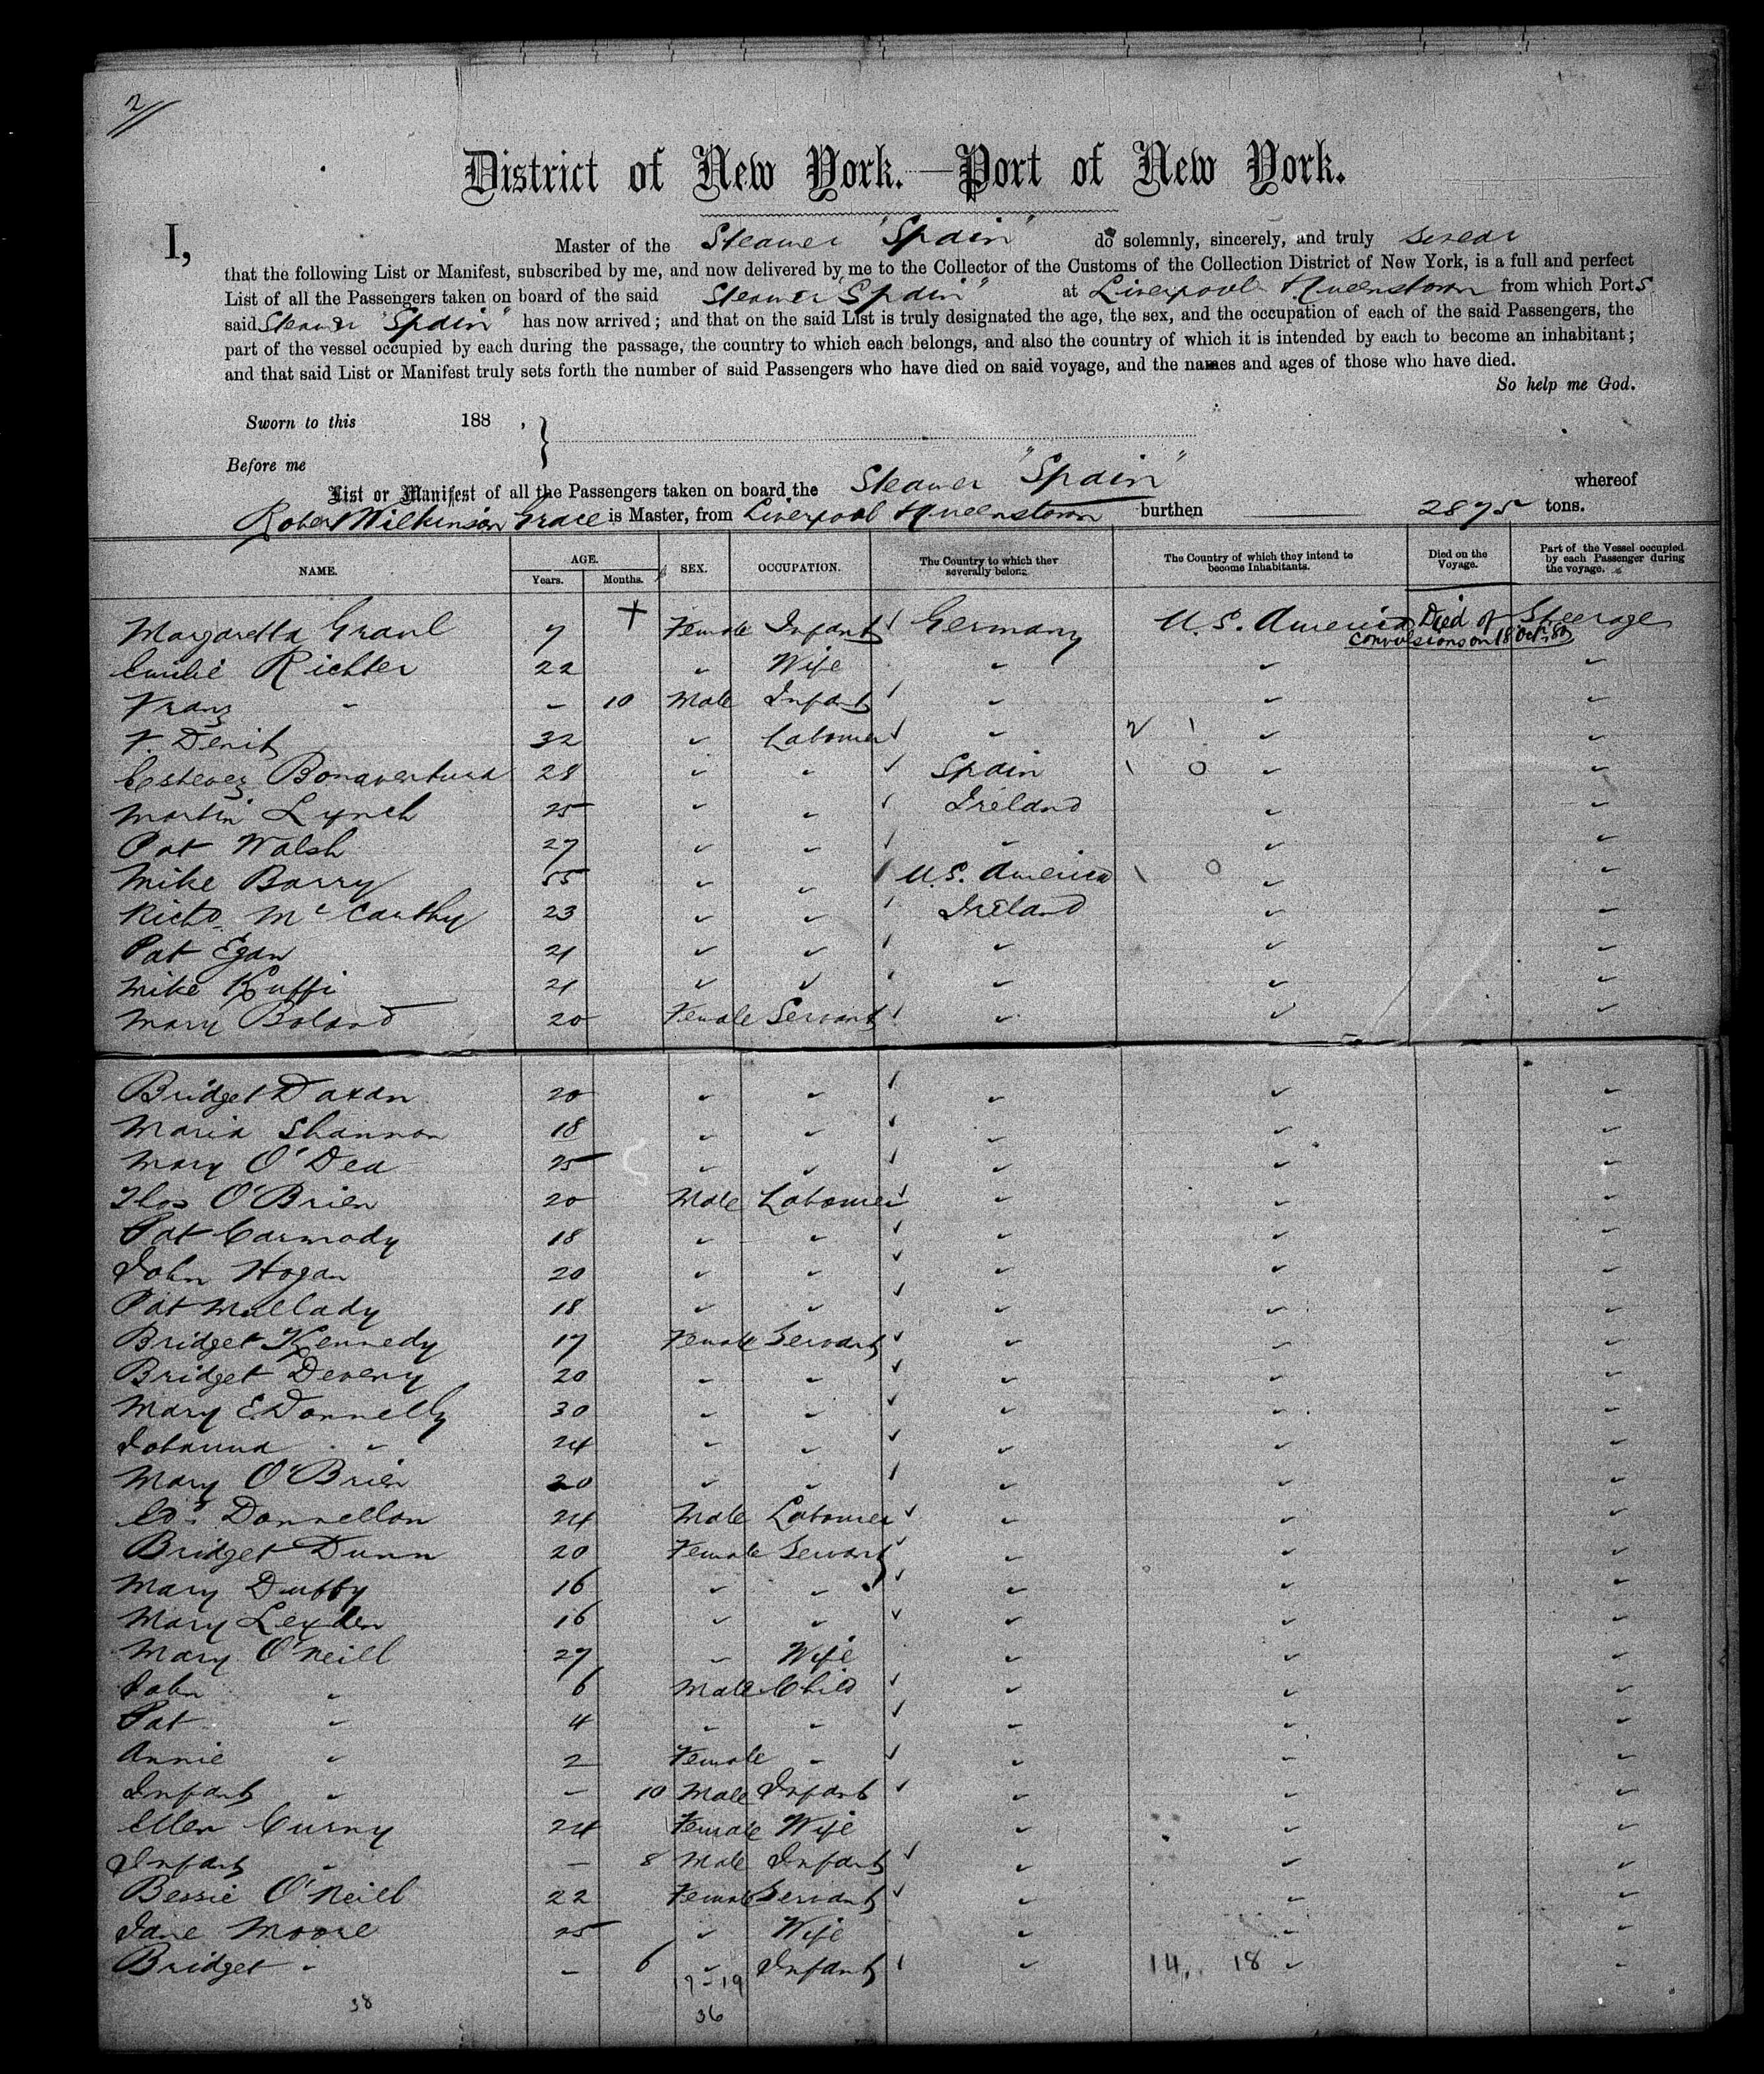 2
District of New York.—Port of New York.
I, Master of the Steamer "Spain" do solemnly, sincerely, and truly swear
that the following List or Manifest, subscribed by me, and now delivered by me to the Collector of the Customs of the Collection District of New York, is a full and perfect
List of all the Passengers taken on board of the said Steamer "Spain" at Liverpool & Queenstown from which Ports
said Steamer "Spain" has now arrived; and that on the said List is truly designated the age, the sex, and the occupation of each of the said Passengers, the
part of the vessel occupied by each during the passage, the country to which each belongs, and also the country of which it is intended by each to become an inhabitant;
and that said List or Manifest truly sets forth the number of said Passengers who have died on said voyage, and the names and ages of those who have died.
So help me God.
Sworn to this 188 ,
Before me
List or Manifest of all the Passengers taken on board the Steamer "Spain" whereof
Robert Wilkinson Grace is Master, from Liverpool & Queenstown burthen 2875 tons.
NAME. AGE. Years. Months. SEX. OCCUPATION. The Country to which they severally belong. The Country of which they intend to become Inhabitants. Died on the Voyage. Part of the Vessel occupied by each Passenger during the voyage.
Margaretta Graul 7 + Female Infant Germany U.S. America Died of convulsions on 18 Octr 80 Steerage
Emilie Richter 22 " Wife " " "
Franz " - 10 Male Infant " " "
F. Denit 32 " Labourer " 2 1 " "
Estevez Bonaventura 28 " " Spain 1 0 " "
Martin Lynch 25 " " Ireland " "
Pat Walsh 27 " " " " "
Mike Barry 55 " " U.S. America 1 0 " "
Richd. McCarthy 23 " " Ireland " "
Pat Egan 21 " " " " "
Mike Kuffi 21 " " " " "
Mary Boland 20 Female Servant " " "
Bridget Daxan 20 " " " " "
Maria Shannon 18 " " " " "
Mary O'Dea 25 " " " " "
Thos O'Brien 20 Male Labourer " " "
Pat Carmody 18 " " " " "
John Hogan 20 " " " " "
Pat Mullady 18 " " " " "
Bridget Kennedy 17 Female Servant " " "
Bridget Deveny 20 " " " " "
Mary E. Donnelly 30 " " " " "
Johanna " 24 " " " " "
Mary O'Brien 20 " " " " "
Ed. Donnellan 24 Male Labourer " " "
Bridget Dunn 20 Female Servant " " "
Mary Duffy 16 " " " " "
Mary Leyden 16 " " " " "
Mary O'Neill 27 " Wife " " "
John " 6 Male Child " " "
Pat " 4 " " " " "
Annie " 2 Female " " " "
Infant " - 10 Male Infant " " "
Ellen Curny 24 Female Wife " " "
Infant " - 8 Male Infant " " "
Bessie O'Neill 22 Female Servant " " "
Jane Moore 25 " Wife " " "
Bridget " - 6 " Infant " 14, 18 " "
38 17-19
36